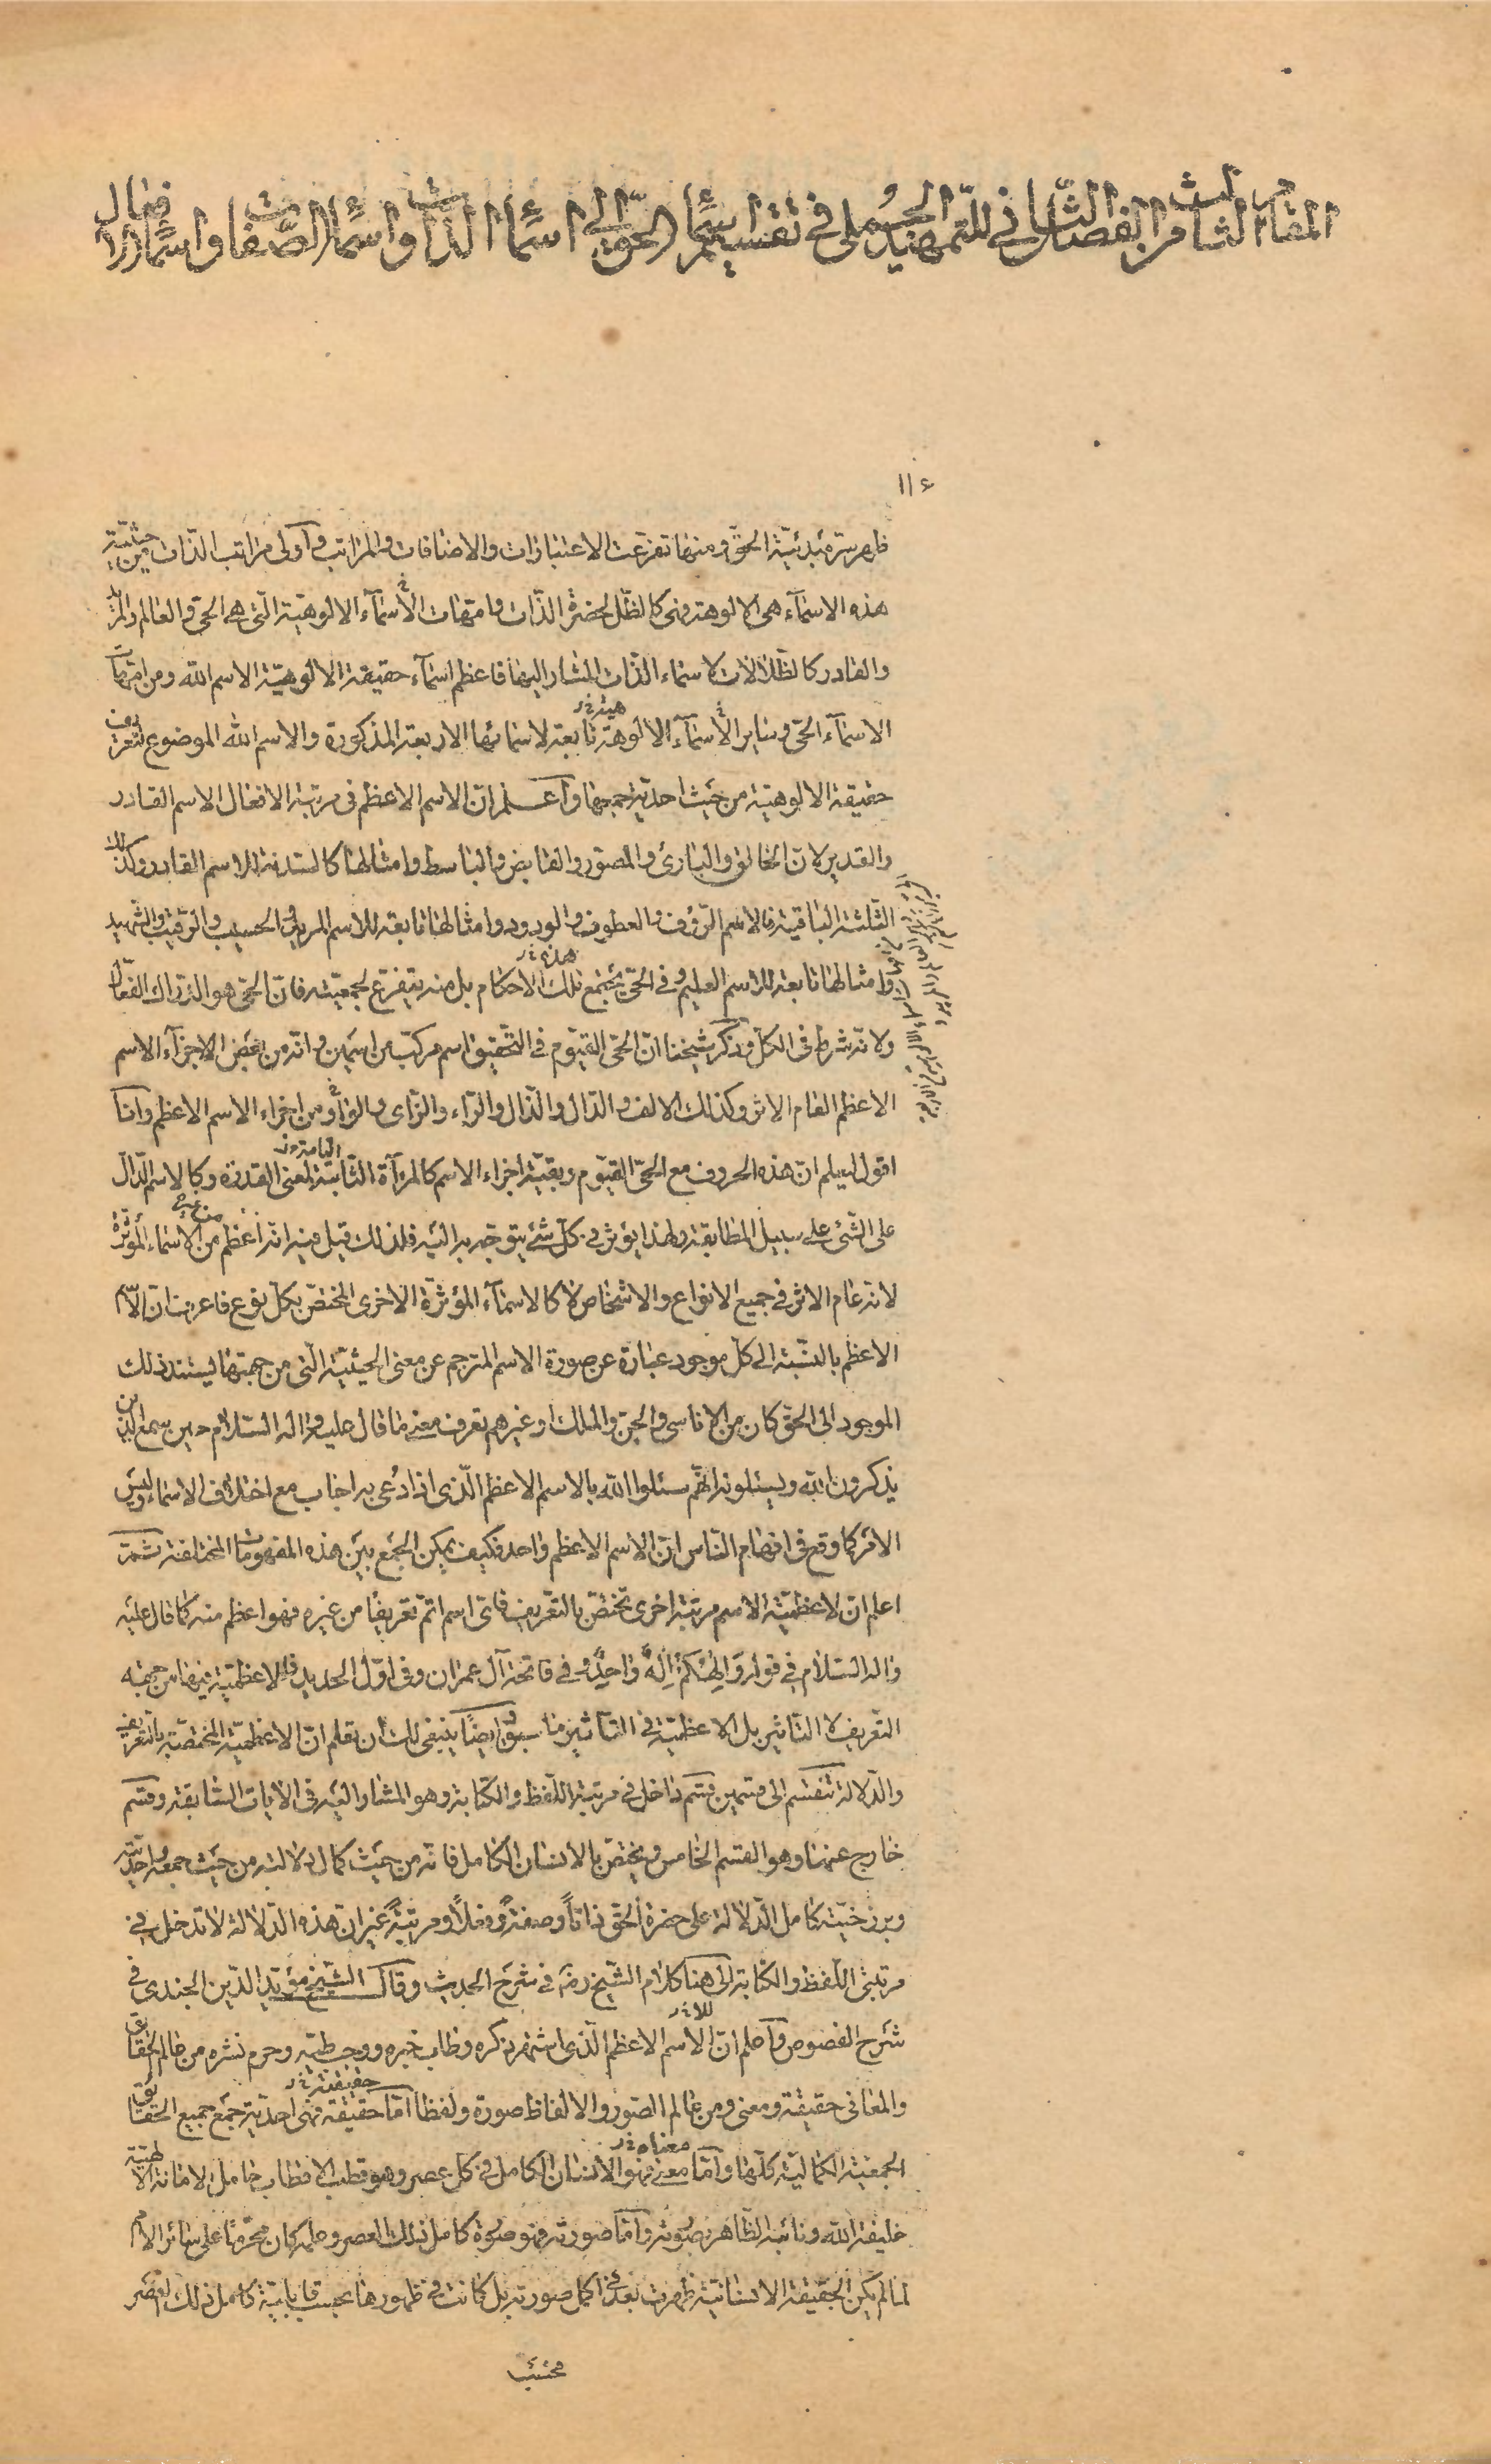 المقام الثالث من الفصل الثاني للتمهيد الجملي في تقسيم اسماء الحق الى اسماء الذات واسماء الصفات واسماء الافعال
١١٤
ظاهر سر مبدئية الحق ومنها تفرعت الاعتبارات والاضافات والمراتب وأولى مراتب الذات من حيثية
هذه الاسمآء هى الالوهة وهى كالظل لحضرة الذات وامهات الاسمآء الالوهية التى هى الحى والعالم والمريد
والقادر كالظلالات لاسماء الذات المشار اليها فاعظم اسمآء حقيقة الالوهية الاسم الله ومن امهات
الاسمآء الحى وساير الاسمآء الالوهة تابعة لاسمائها الاربعة المذكورة والاسم الله الموضوع لتعريف
حقيقة الالوهية من حيث احدية جميعها وآعلم ان الاسم الاعظم فى مرتبة الافعال الاسم القادر
والقدير لان الخالق والبارئ والمصور والقابض والباسط وامثالها كالسدنة للاسم القادر وكذلك
الثلثة الباقية فالاسم الرؤف والعطوف والودود وامثالها تابعة للاسم المريد والحسيب والرقيب والشهيد
وامثالها تابعة للاسم العليم وفى الحى يجتمع تلك الاحكام بل منه يتفرع لجمعيته فان الحى هو الدراك الفعال
ولانه شرط فى الكل وذكر شيخنا ان الحى القيوم فى التحقيق اسم مركب من اسمين وانه من بعض الاجزآء الاسم
الاعظم العام الاثر وكذلك الالف والدال والذال والراء والزاى والواو من اجزاء الاسم الاعظم وانا
اقول ليعلم ان هذه الحروف مع الحى القيوم وبقية اجزاء الاسم كالمرآة الثابتة لمعنى القدرة وكالاسم الدال
على الشئ على سبيل المطابقة ولهذا يؤثر فى كل شئ يتوجه به اليه فلذلك قيل فيه انه اعظم من الاسماء المؤثرة
لانه عام الاثر فى جميع الانواع والاشخاص لا كالاسمآء المؤثرة الاخرى المختص بكل نوع فاعرف ان الاسم
الاعظم بالنسبة الى كل موجود عبارة عن صورة الاسم المترجم عن معنى الحيثية التى من جهتها يستند ذلك
الموجود الى الحق كان من الاناسى والجن والملك او غيرهم تعرف معنى ما قال عليه وآله السلام حين سمع الذين
يذكرون الله ويسئلونه انهم سئلوا الله بالاسم الاعظم الذى اذا دُعى به اجاب مع اختلاف الاسماء وليس
الامر كما وقع فى افهام الناس ان الاسم الاعظم واحد فكيف يمكن الجمع بين هذه المفهومات المختلفة ثمت
اعلم ان لاعظمية الاسم مرتبة اخرى تختص بالتعريف فاى اسم اتم تعريفا من غيره فهو اعظم منه كما قال عليه
وآله السلام فى قوله وَالِهُكُمْ اِلهٌ وَاحِدٌ وفى فاتحة آل عمران وفى اول الحديد فالاعظمية فيها من جهة
التعريف لا التاثير بل الاعظمية فى التاثير ما سبق وايضًا ينبغى لك ان تعلم ان الاعظمية المختصة بالتعريف
والدلالة تنقسم الى قسمين قسم داخل فى مرتبة اللفظ والكتابة وهو المشار اليه فى الايات السابقة وقسم
خارج عنها وهو القسم الخامس ويختص بالانسان الكامل فانه من حيث كمال دلالته من حيث جمعه واحديته
وبرزخيته كامل الدلالة على حضرة الحق ذاتاً وصفةً وفعلاً ومرتبةً غير ان هذه الدلالة لا تدخل فى
مرتبتى اللفظ والكتابة الى هنا كلام الشيخ رضه فى شرح الحديث وقال الشيخ مؤيد الدين الجندى فى
شرح الفصوص وآعلم ان الاسم الاعظم الذى اشتهر ذكره وطاب خبره ووجب طيه وحرم نشره من عالم الحقايق
والمعانى حقيقة ومعنى ومن عالم الصور والالفاظ صورة ولفظا اما حقيقة فهى احدية جمع جميع الحقائق
الجمعية الكمالية كلها وآما معنى فهو الانسان الكامل فى كل عصر وهو قطب الاقطاب حامل الامانة الالهية
خليفة الله ونائبه الظاهر بصورته وآما صورته فهو صورة كامل ذلك العصر وعلمه كان محرما على سائر الامم
لما لم يكن الحقيقة الانسانية ظهرت بعد فى اكمل صورته بل كانت فى ظهورها بحسب قابلية كامل ذلك العصر
فحسب